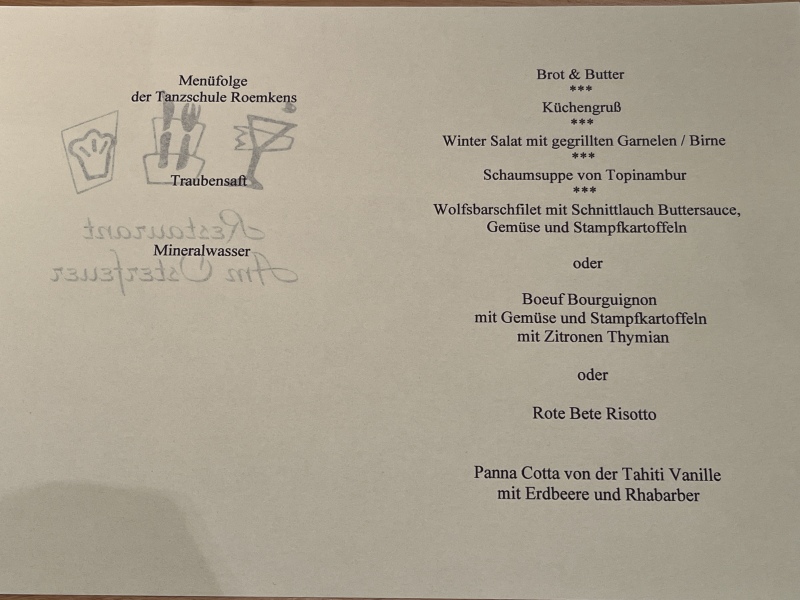 Menüfolge
der Tanzschule Roemkens
Traubensaft
Restaurant
Mineralwasser
Am Osterfeuer
Brot & Butter
***
Küchengruß
***
Winter Salat mit gegrillten Garnelen / Birne
***
Schaumsuppe von Topinambur
***
Wolfsbarschfilet mit Schnittlauch Buttersauce,
Gemüse und Stampfkartoffeln
oder
Boeuf Bourguignon
mit Gemüse und Stampfkartoffeln
mit Zitronen Thymian
oder
Rote Bete Risotto
Panna Cotta von der Tahiti Vanille
mit Erdbeere und Rhabarber